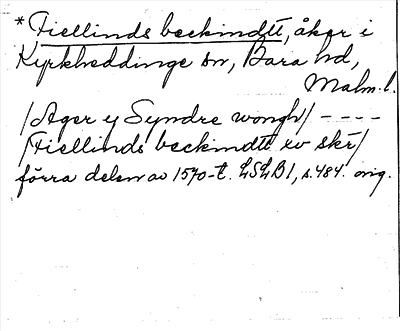 *Fiellinds beckindtt, åker i
Kyrkheddinge sn, Bara hd,
Malm. l.
/Ager y Syndre wongh/ - - - -
/Fiellinds beckindtt xv skr/
förra delen av 1570-t. LSLB1, s. 484. orig.